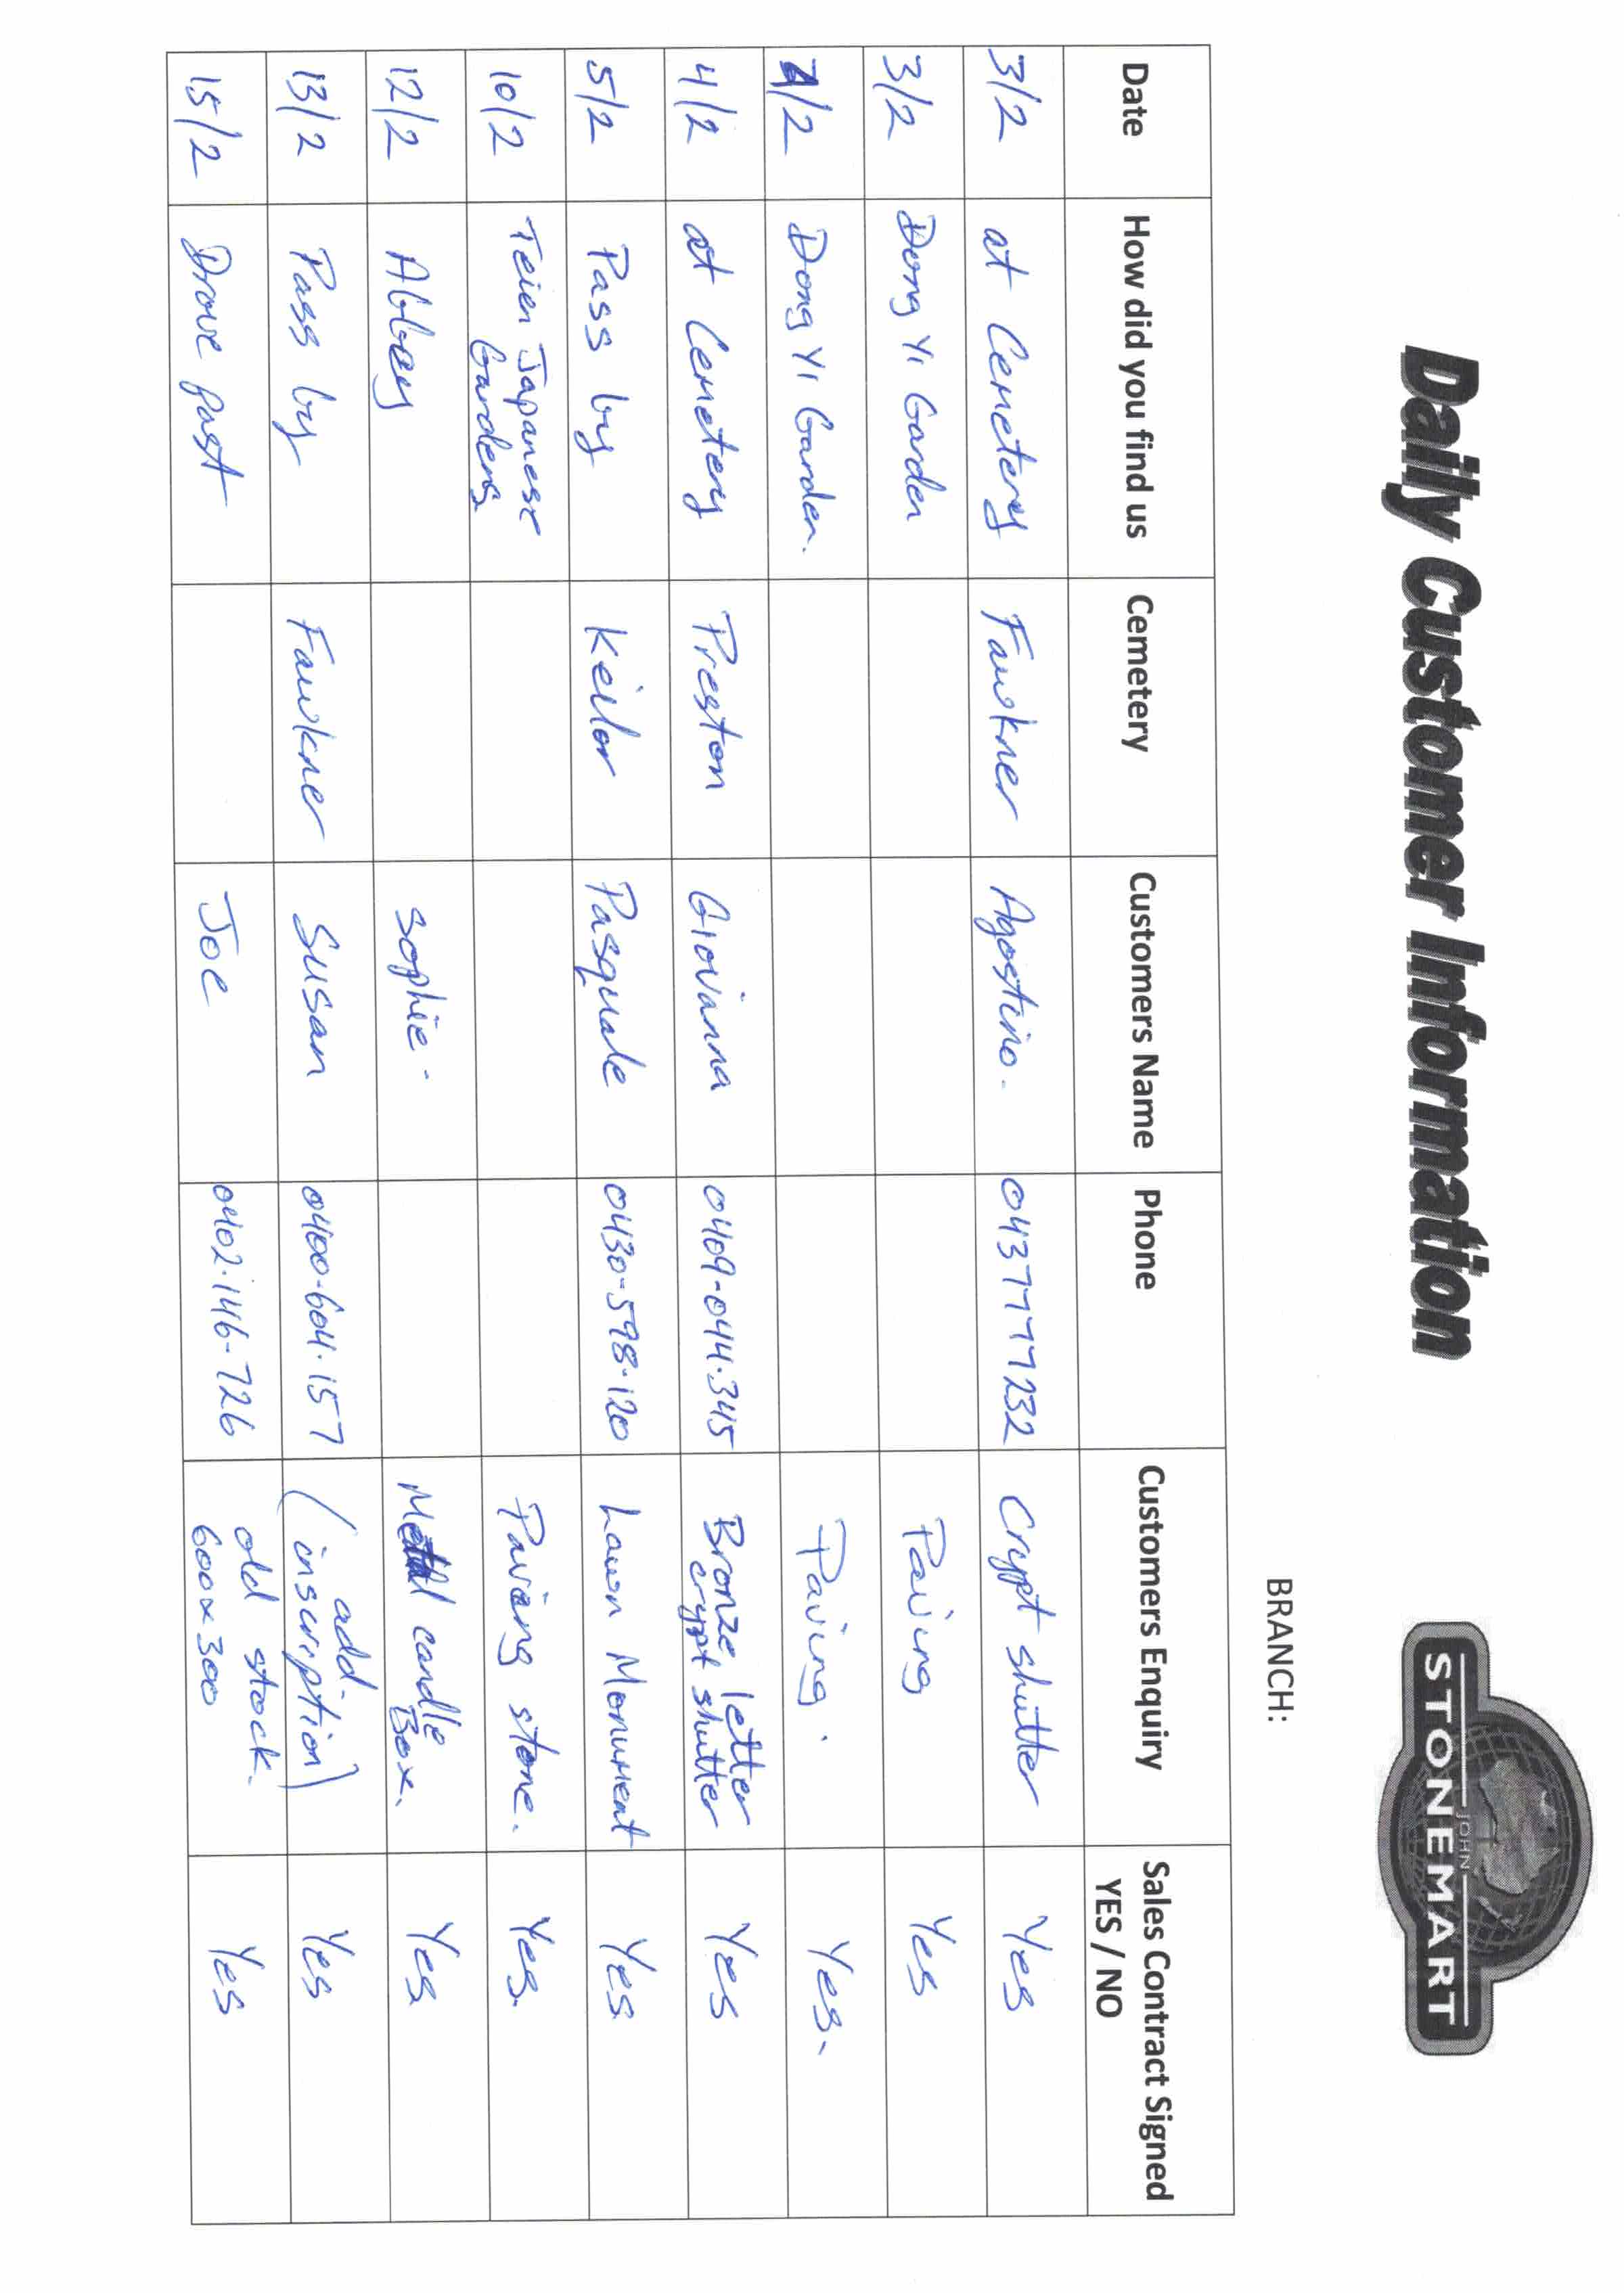 Daily Customer Information
JOHN
STONEMART
BRANCH:
Date How did you find us Cemetery Customers Name Phone Customers Enquiry Sales Contract Signed
YES / NO
3/2 at Cemetery Fawkner Agostino. 0437777232 Crypt shutter Yes
3/2 Dong Yi Garden Paving Yes
4/2 Dong Yi Garden. Paving. Yes-
4/2 at Cemetery Preston Giovanna 0409-044.345 Bronze letter
crypt shutter Yes
5/2 Pass by Keilor Pasquale 0430-598-120 Lawn Monument Yes
10/2 Teien Japanese
Gardens Paving stone. Yes.
12/2 Abbey Sophie- Metal candle
Box. Yes
13/2 Pass by Fawkner Susan 0400-604.157 add-
(inscription) Yes
15/2 Drove past Joe 0402.146-726 old stock.
600x300 Yes